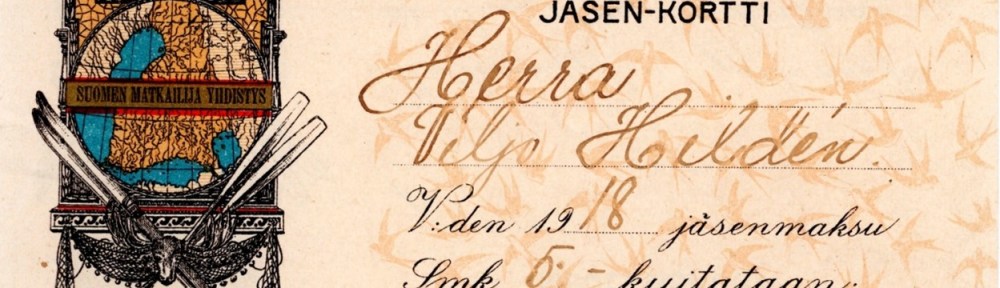 JÄSEN-KORTTI
SUOMEN MATKAILIJA YHDISTYS
Herra
Viljo Hildén.
V:den 1918 jäsenmaksu
Smk 5.- kuitataan: